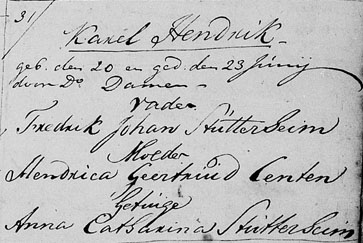 31/
Karel Hendrik
geb. den 20 en ged. den 23 Junij
door Ds. Damen
Vader
Fredrik Johan Stutterheim
Moeder
Hendrica Geertruid Centen
Getuige
Anna Catharina Stutterheim